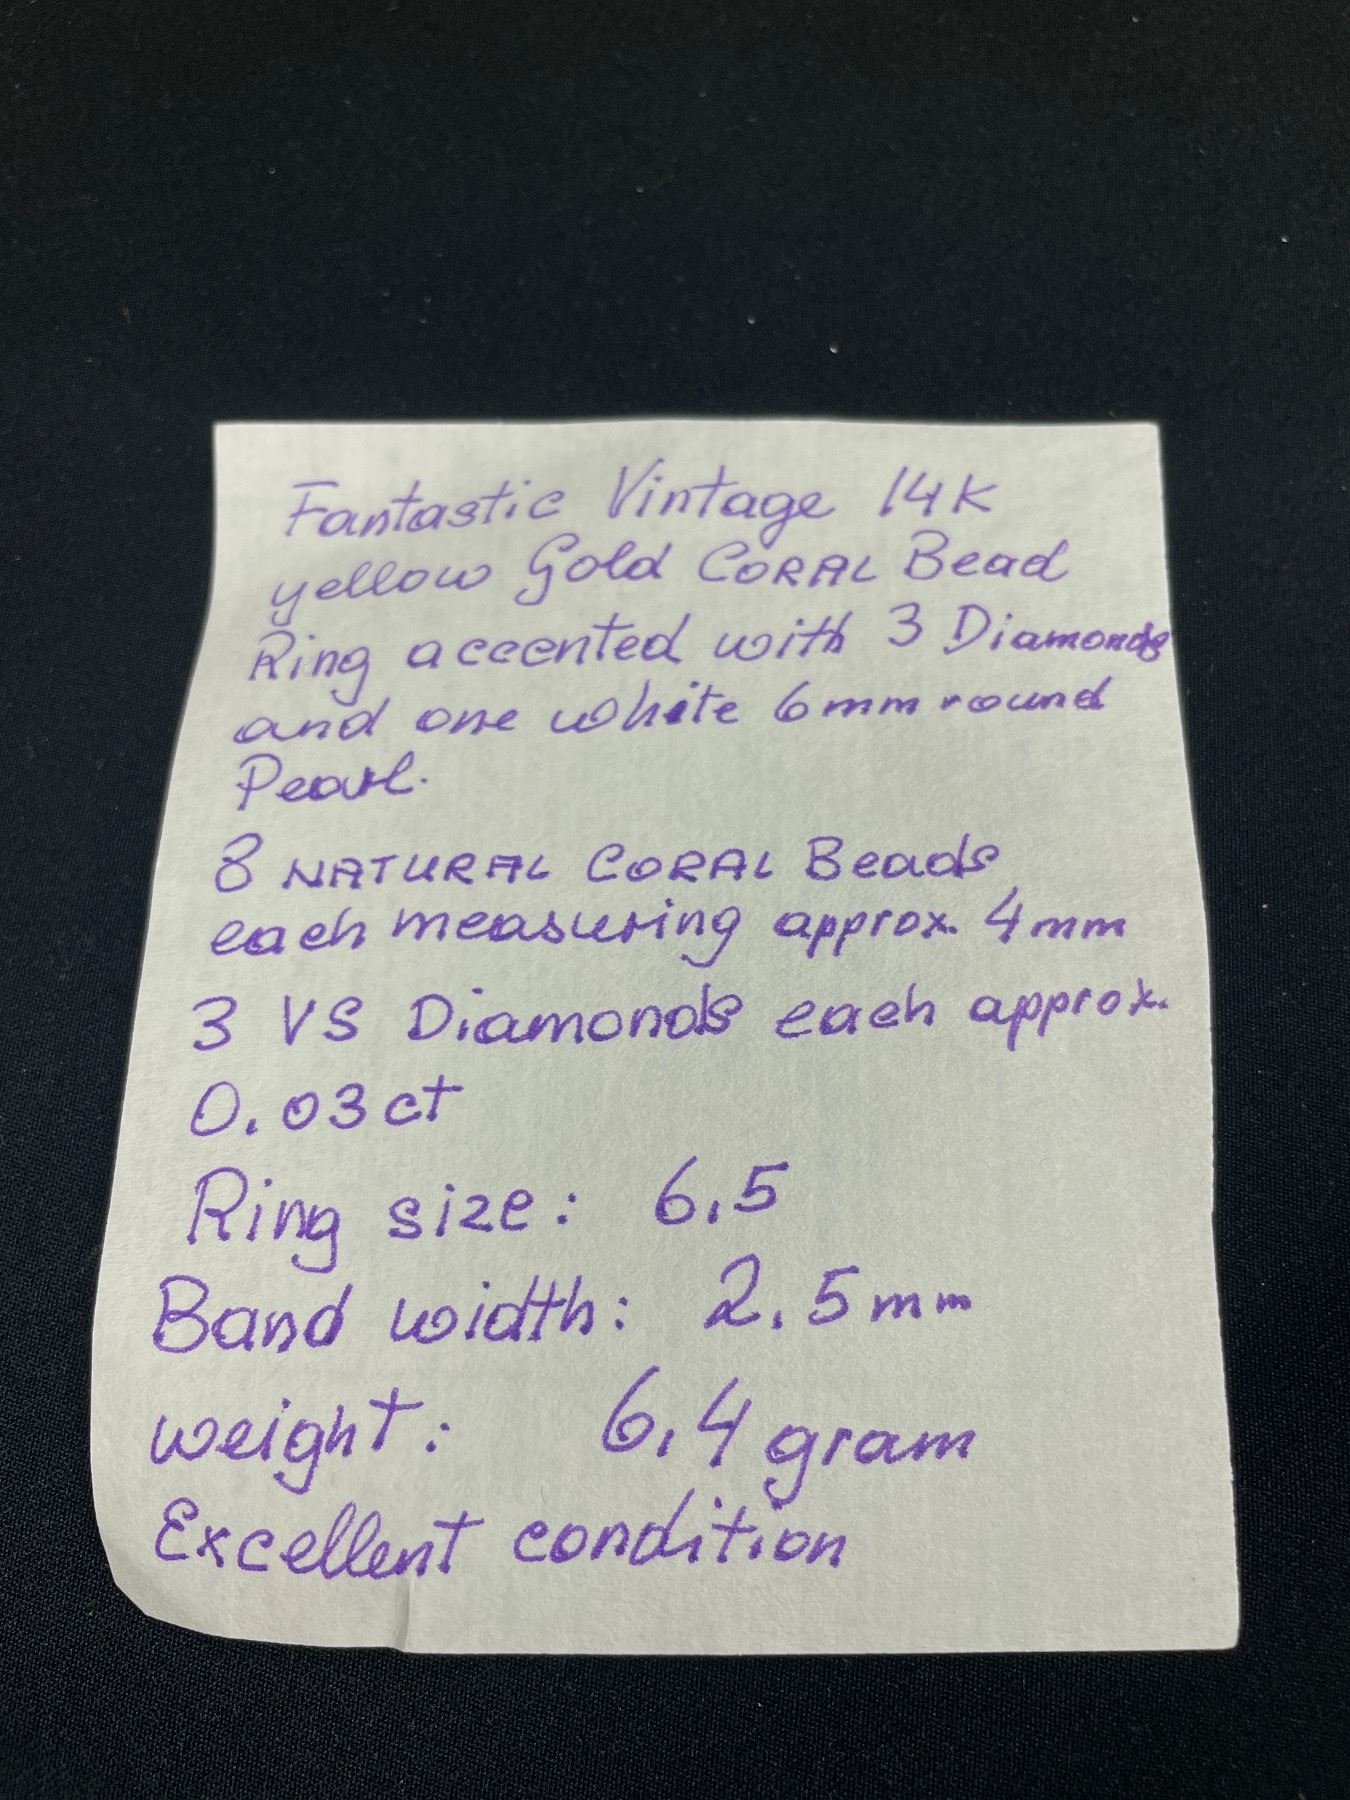 Fantastic Vintage 14K
yellow Gold CORAL Bead
Ring accented with 3 Diamonds
and one white 6mm round
Pearl.
8 NATURAL CORAL Beads
each measuring approx. 4mm
3 VS Diamonds each approx.
0.03ct
Ring size: 6.5
Band width: 2.5mm
weight: 6.4 gram
Excellent condition